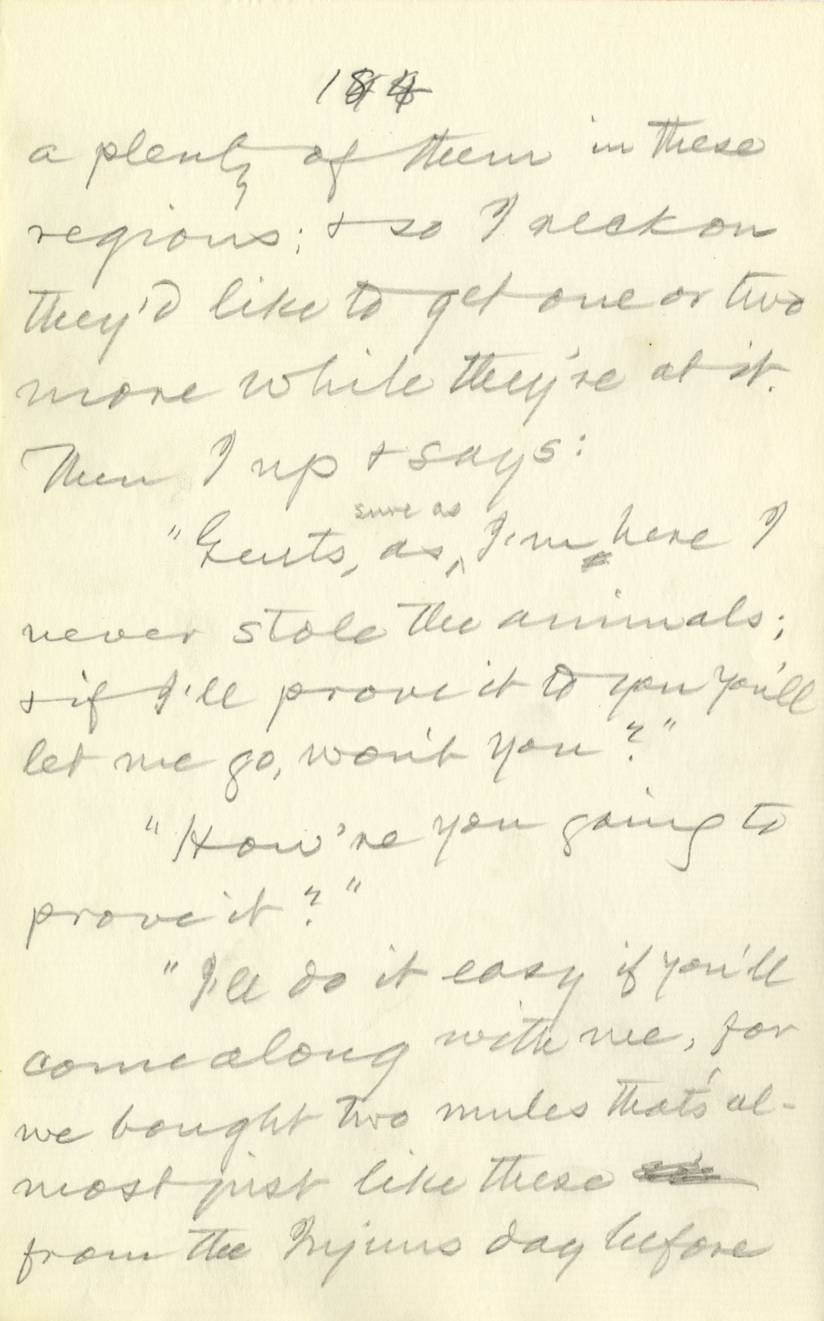 184
a plenty of them in these
regions; & so I reckon
they'd like to get one or two
more while they're at it.
Then I up & says:
sure as
"Gents, as, I'm here I
never stole the animals;
& if I'll prove it to you you'll
let me go, won't you?"
"How're you going to
prove it?"
"I'll do it easy if you'll
come along with me, for
we bought two mules that's al-
most just like these
from the Injuns day before